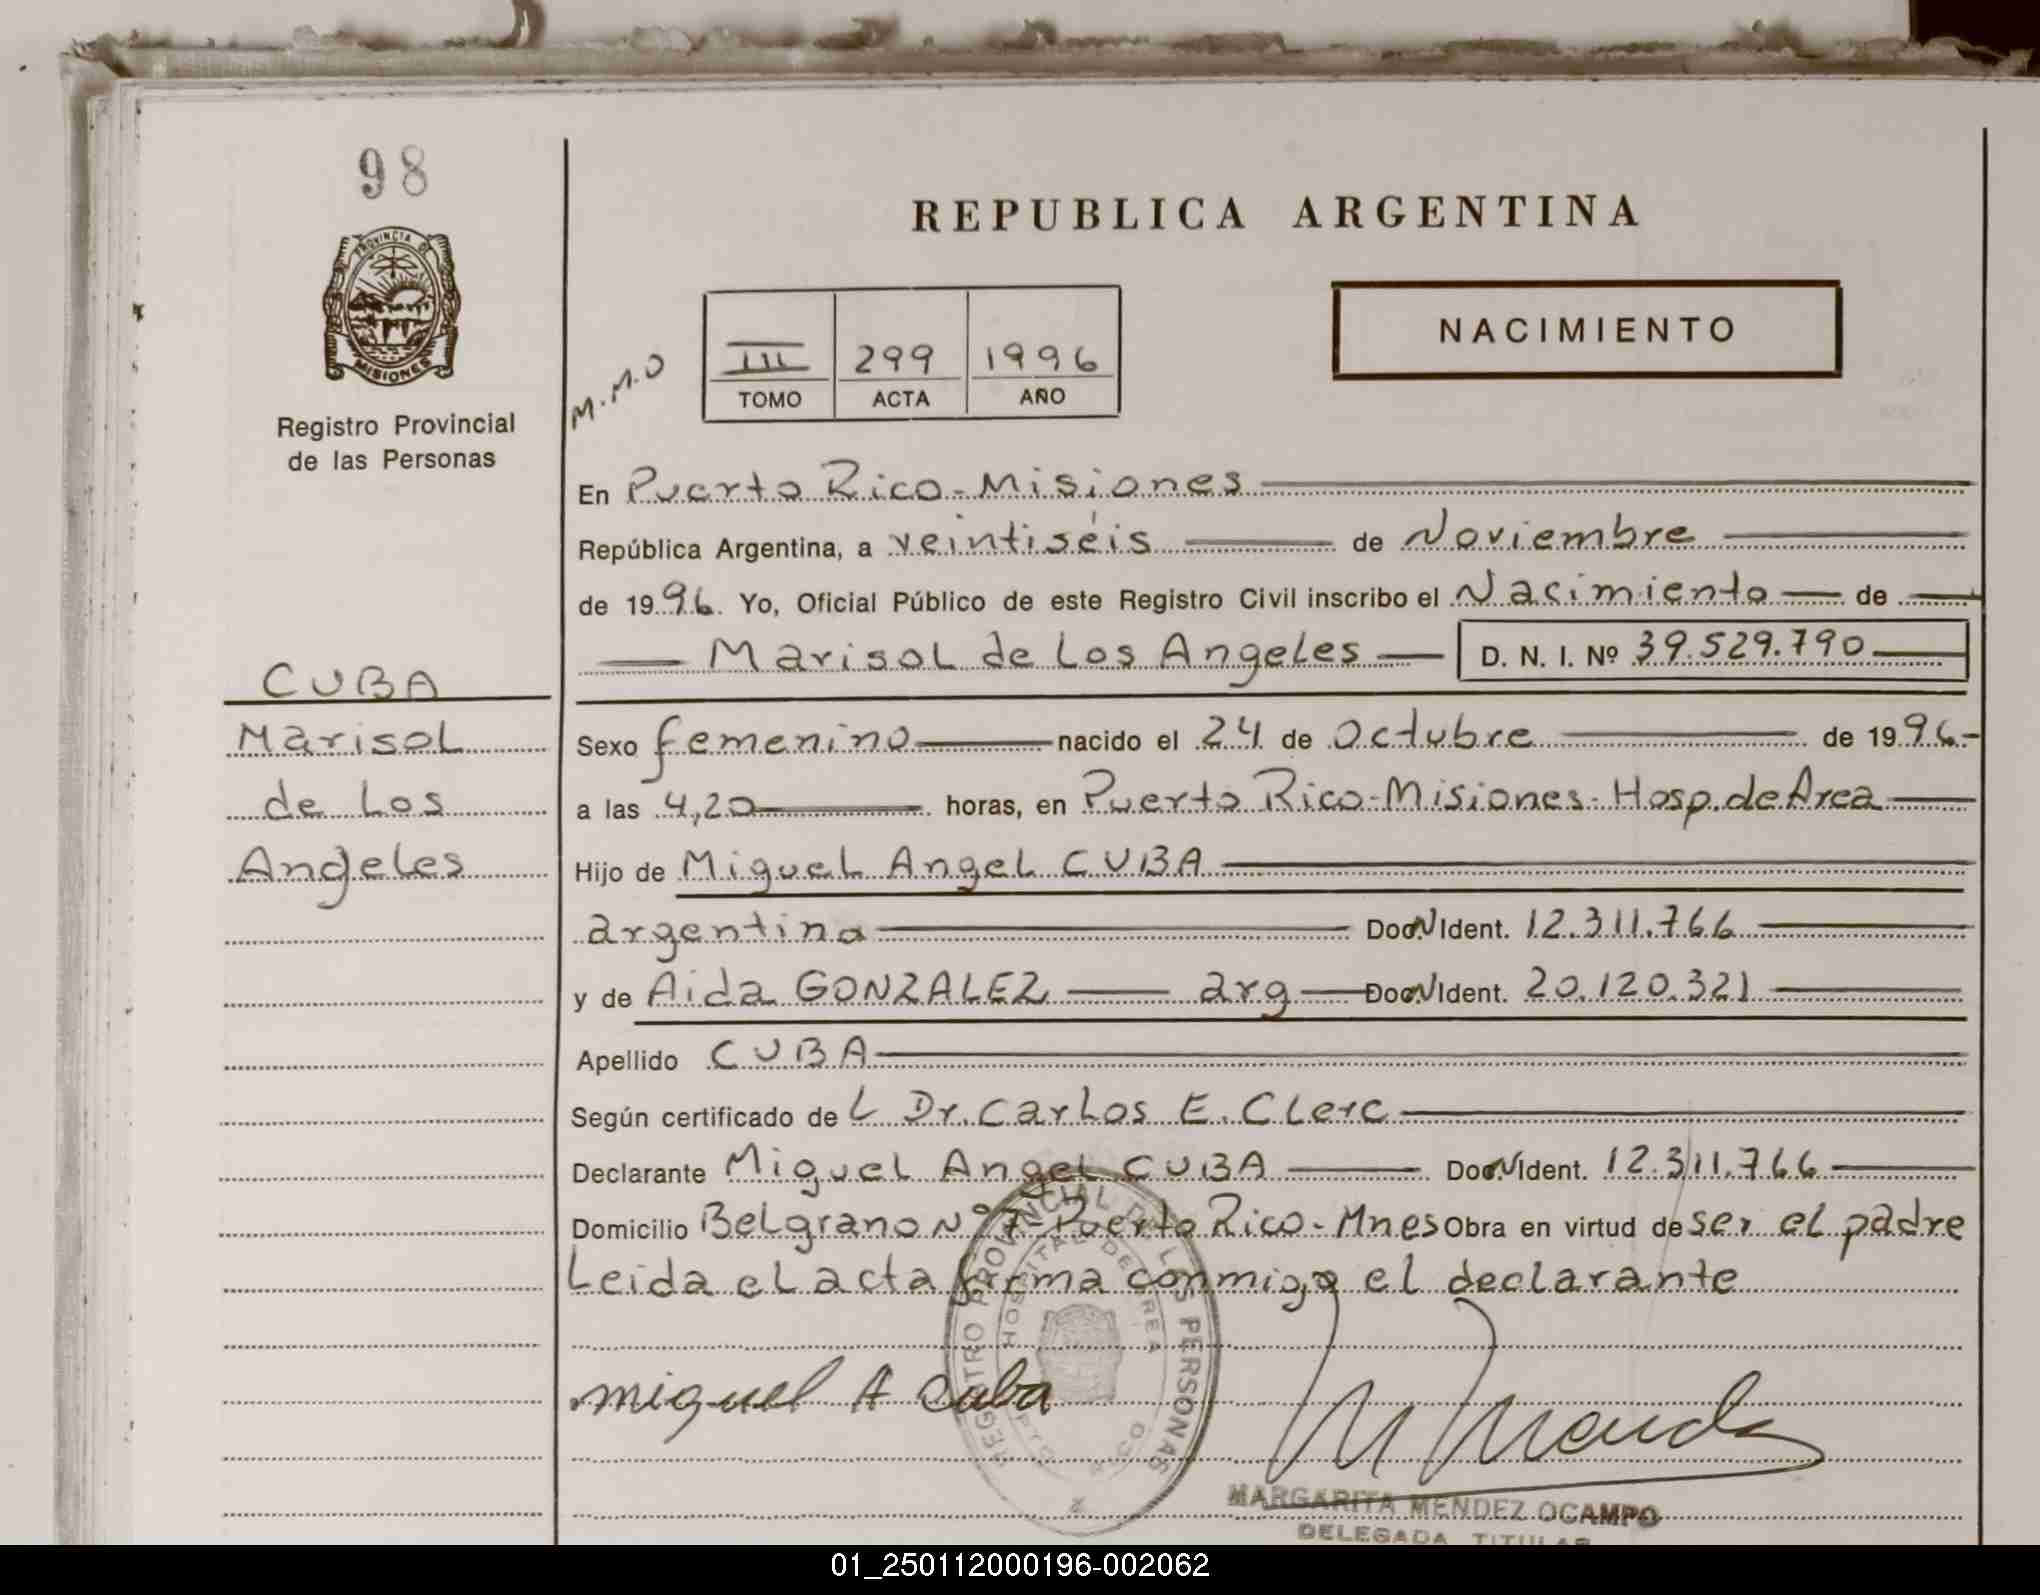 98
PROVINCIA DE
MISIONES
Registro Provincial
de las Personas
REPUBLICA ARGENTINA
NACIMIENTO
M.M.O
III 299 1996
TOMO ACTA AÑO
En Puerto Rico - Misiones
República Argentina, a veintiséis de Noviembre
de 1996. Yo, Oficial Público de este Registro Civil inscribo el Nacimiento de
Marisol de Los Angeles D. N. I. Nº 39.529.790
CUBA
Marisol
de Los
Angeles
Sexo femenino nacido el 24 de Octubre de 1996.-
a las 4,20 horas, en Puerto Rico-Misiones- Hosp. de Area
Hijo de Miguel Angel CUBA
argentino Doc. N Ident. 12.311.766
y de Aida GONZALEZ arg Doc. N Ident. 20.120.321
Apellido CUBA
Según certificado de L Dr. Carlos E. Clerc
Declarante Miguel Angel CUBA Doc. N Ident. 12.311.766
Domicilio Belgrano Nº 7- Puerto Rico- Mnes Obra en virtud de ser el padre
Leida el acta firma conmigo el declarante
REGISTRO PROVINCIAL DE LAS PERSONAS
HOSPITAL DE AREA
PTO RICO
Miguel A Cuba
M Mendez
MARGARITA MENDEZ OCAMPO
DELEGADA TITULAR
01_250112000196-002062